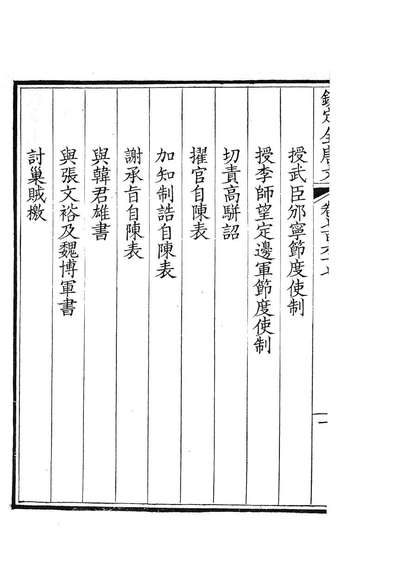 欽定全唐文
一
授武臣邠寧節度使制
授李師望定邊軍節度使制
切責高駢詔
擢官自陳表
加知制誥自陳表
謝承旨自陳表
與韓君雄書
與張文裕及魏博軍書
討巢賊檄